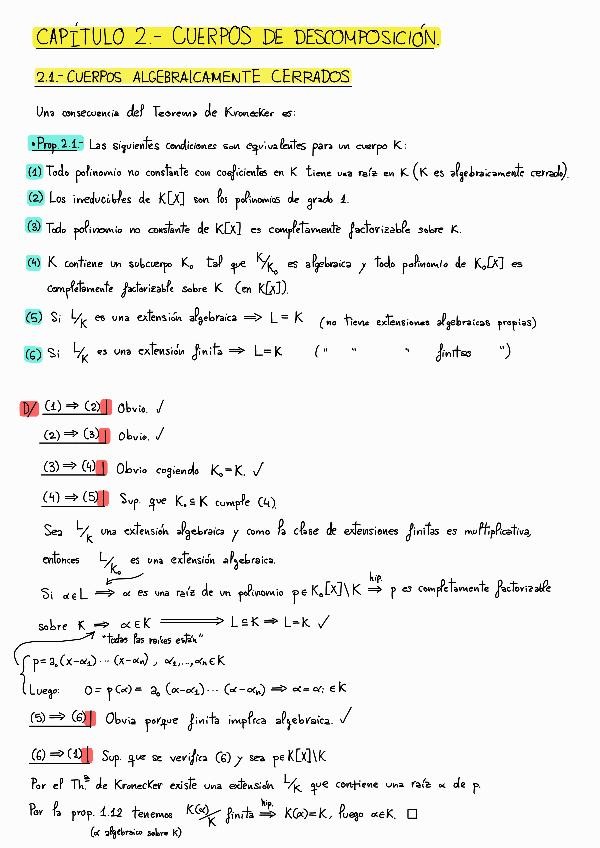 CAPÍTULO 2.- CUERPOS DE DESCOMPOSICIÓN.
2.1.- CUERPOS ALGEBRAICAMENTE CERRADOS
Una consecuencia del Teorema de Kronecker es:
• Prop. 2.1.- Las siguientes condiciones son equivalentes para un cuerpo K:
(1) Todo polinomio no constante con coeficientes en K tiene una raíz en K (K es algebraicamente cerrado).
(2) Los irreducibles de K[X] son los polinomios de grado 1.
(3) Todo polinomio no constante de K[X] es completamente factorizable sobre K.
(4) K contiene un subcuerpo K₀ tal que K/K₀ es algebraica y todo polinomio de K₀[X] es
completamente factorizable sobre K (en K[X]).
(5) Si L/K es una extensión algebraica ⇒ L = K (no tiene extensiones algebraicas propias)
(6) Si L/K es una extensión finita ⇒ L=K (" " " finitas ")
D/ (1) ⇒ (2) Obvio. ✓
(2) ⇒ (3) Obvio. ✓
(3) ⇒ (4) Obvio cogiendo K₀=K. ✓
(4) ⇒ (5) Sup. que K₀ ⊆ K cumple (4).
Sea L/K una extensión algebraica y como la clase de extensiones finitas es multiplicativa,
entonces L/K₀ es una extensión algebraica.
Si α∈L ⇒ α es una raíz de un polinomio p∈K₀[X]\K ⇒ hip. p es completamente factorizable
sobre K ⇒ α∈K ⇒ L⊆K ⇒ L=K ✓
"todas las raíces están"
p=a₀(x-α₁)···(x-αₙ), α₁,...,αₙ∈K
Luego: 0=p(α)= a₀(α-α₁)···(α-αₙ) ⇒ α=αᵢ∈K
(5) ⇒ (6) Obvia porque finita implica algebraica. ✓
(6) ⇒ (1) Sup. que se verifica (6) y sea p∈K[X]\K
Por el Th.ª de Kronecker existe una extensión L/K que contiene una raíz α de p.
Por la prop. 1.12 tenemos K(α)/K finita ⇒ hip. K(α)=K, luego α∈K. □
(α algebraico sobre K)